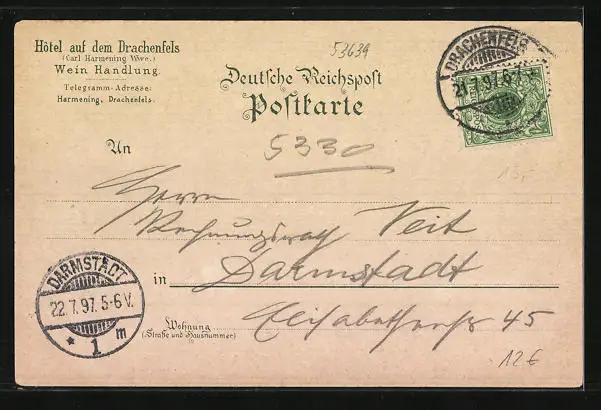 Hôtel auf dem Drachenfels
(Carl Harmening Wwe.)
Wein Handlung.
Telegramm-Adresse:
Harmening, Drachenfels.
53639
Deutsche Reichspost
Postkarte
DRACHENFELS
21.7.97. 6-7
5330
15,-
An
Herrn
Rechnungsrath Veit
in Darmstadt
Wohnung
(Straße und Hausnummer)
Elisabethenstr 45
DARMSTADT
22.7.97. 5-6V.
* 1 m
12€